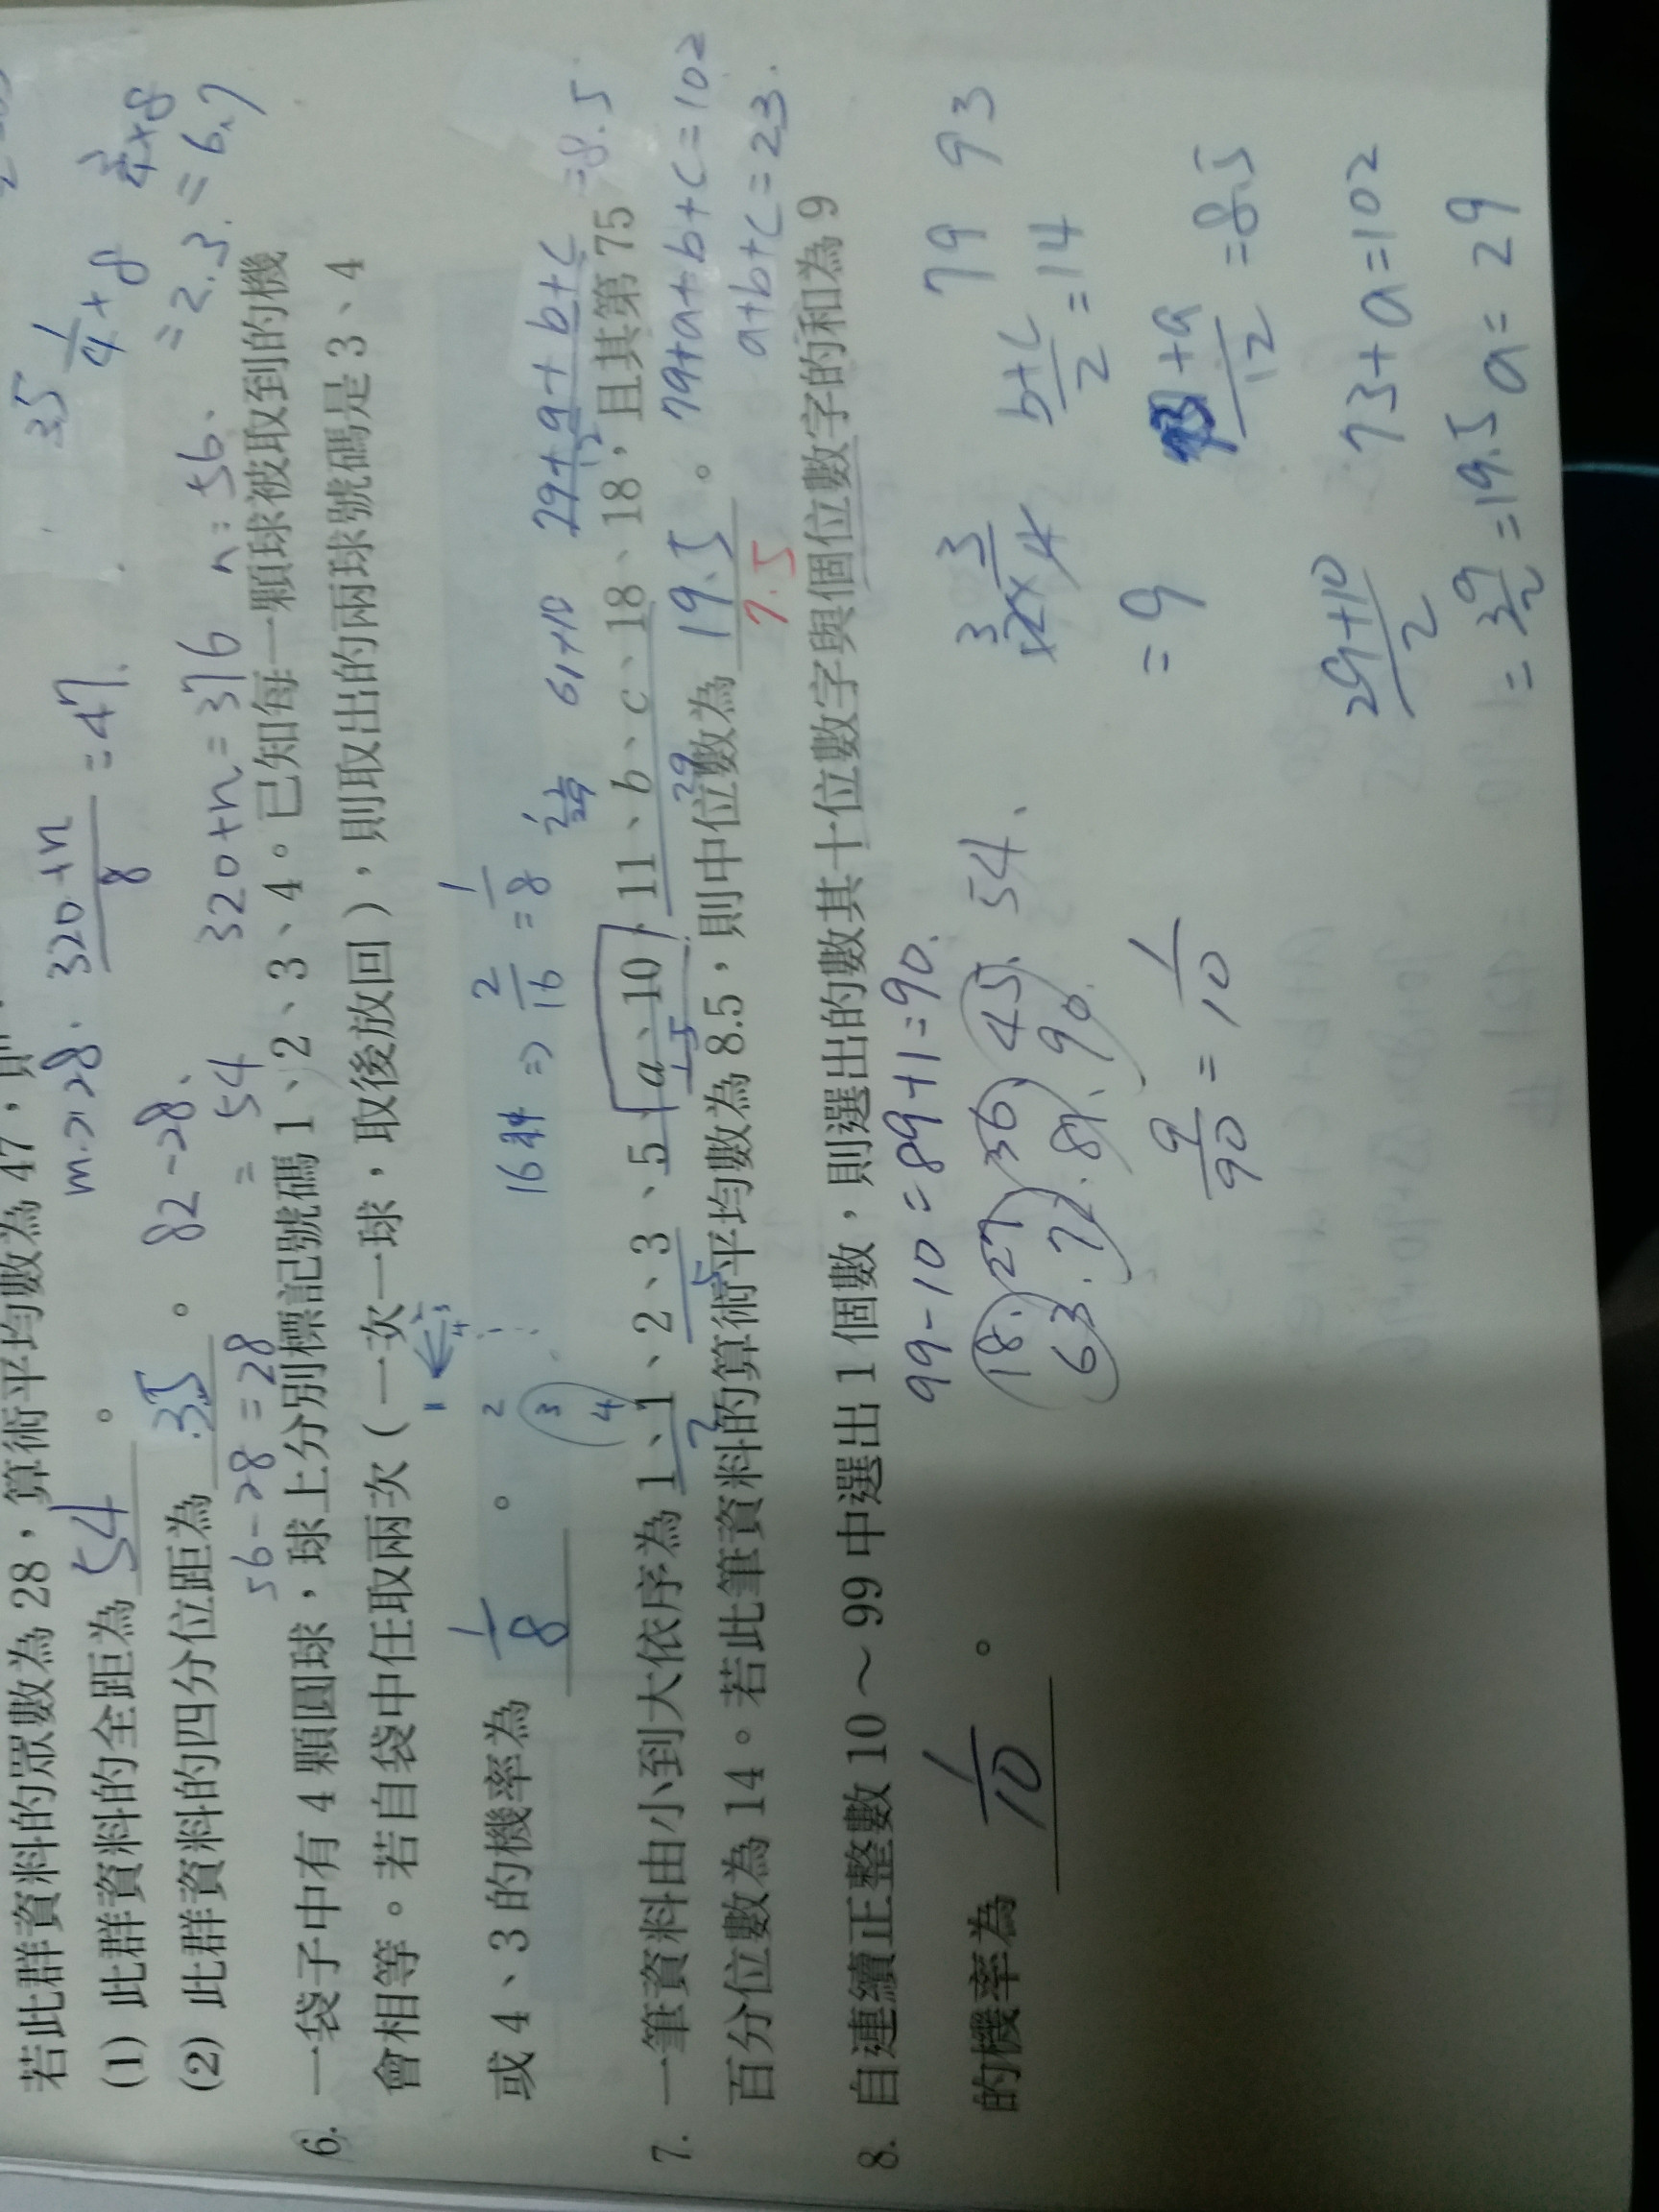 若此群資料的眾數為 28，算術平均數為 47，則
m=28. (320+n)/8 = 47.
(1) 此群資料的全距為 54 。
82-28. = 54
320+n=376 n=56.
(2) 此群資料的四分位距為 。
56-28=28
1/4×8 =2.
3/4×8 =6.
6. 一袋子中有 4 顆圓球，球上分別標記號碼 1、2、3、4。已知每一顆球被取到的機
會相等。若自袋中任取兩次（一次一球，取後放回），則取出的兩球號碼是 3、4
或 4、3 的機率為 1/8 。
1 2 3 4
⇒ 2/16 = 1/8
(29+a+b+c)/12 = 8.5
7. 一筆資料由小到大依序為 1、1、2、3、5、a、10、11、b、c、18、18，且其第 75
79+a+b+c=102
a+b+c=23.
百分位數為 14。若此筆資料的算術平均數為 8.5，則中位數為 19.5 。
7.5
8. 自連續正整數 10～99 中選出 1 個數，則選出的數其十位數字與個位數字的和為 9
的機率為 1/10 。
99-10=89+1=90.
18. 27 36 45. 54、
63. 72. 81. 90.
9/90 = 1/10
79 93
=9
(b+c)/2 =14
+a /12 =8.5
73+a=102
a=29
(29+10)/2
= 39/2 =19.5